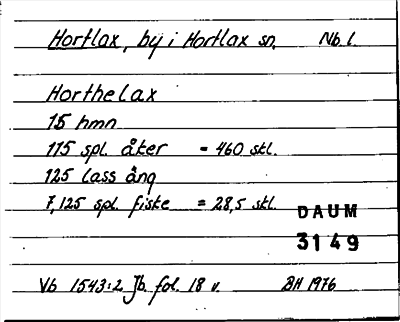 Hortlax, by i Hortlax sn, Nb l.
Horthelax
15 hmn
115 spl. åker = 460 skl.
125 lass äng
7,125 spl. fiske = 28,5 skl.
DAUM
3149
Vb 1543:2 Jb. fol. 18 v. BH 1976